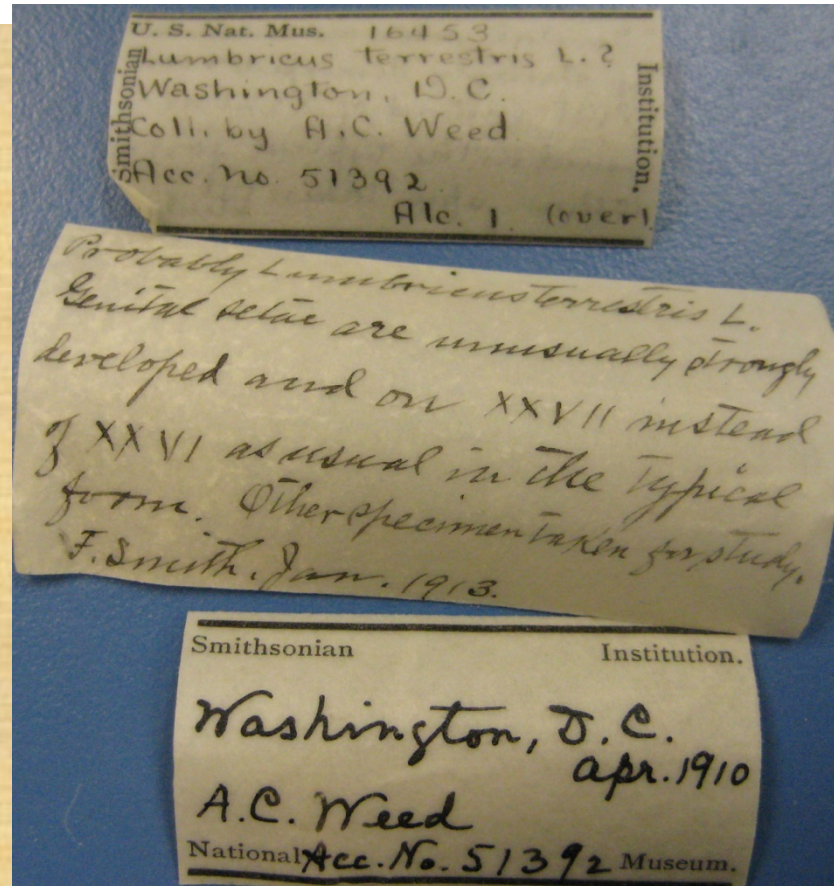 U. S. Nat. Mus. 16453
Lumbricus terrestris L.?
Washington, D.C.
Coll. by A.C. Weed.
Acc. no. 51392.
Alc. 1. (over)
Smithsonian
Institution.
Probably Lumbricus terrestris L.
Genital setae are unusually strongly
developed and on XXVII instead
of XXVI as usual in the typical
form. Other specimen taken for study.
F. Smith. Jan. 1913.
Smithsonian Institution.
Washington, D.C.
apr. 1910
A.C. Weed
National Acc. No. 51392 Museum.